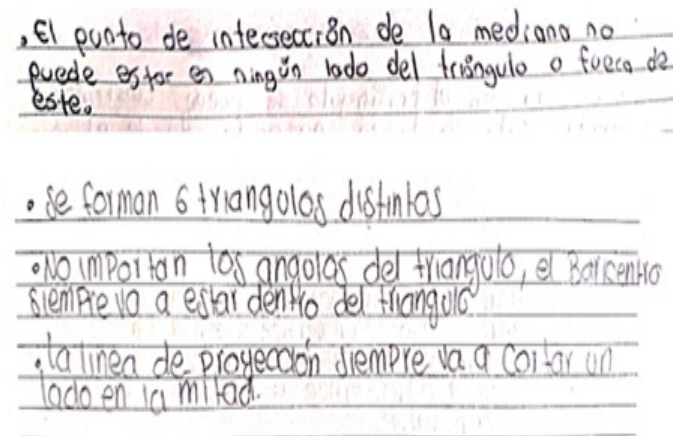 • El punto de intersección de la mediana no
puede estar en ningún lado del triángulo o fuera de
este.
• Se forman 6 triangulos distintos
• No importan los angulos del triangulo, el Baricentro
siempre va a estar dentro del triangulo
• la linea de proyección siempre va a cortar un
lado en la mitad.